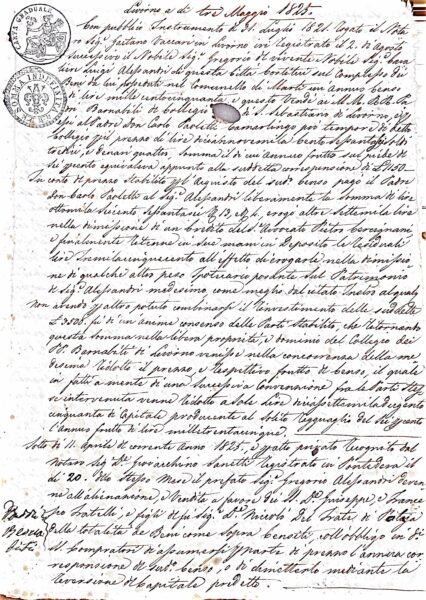 Livorno a dì tre Maggio 1825.
Con pubblico Instrumento de 31. Luglio 1821. rogato
Sig. Gaetano Vaccari in Livorno ivi registrato il 2. di Agosto
successivo il Nobile Sig. Gregorio di vivente Nobile Sig.
Luigi Alessandri di questa Città costituì sul Complesso di
Beni da lui posseduti nel comunello di Marti un annuo censo
di lire mille centocinquanta, e questo Vendè ai M. M. R. R.
Barnabiti di Collegio di S. Sebastiano di Livorno,
al Padre Don Carlo Paoletti Camarlingo pro tempore di detto
Collegio pel prezzo di lire diciannovemila cento
e denari quattro, somma il di cui annuo frutto sul piede di
questo equivaleva appunto alla suddetta corrispensione di £ 1150.
In conto di prezzo stabilito per l'acquisto del sud. censo pagò il Padre
Don Carlo Paoletti al Sig. Alessandri liberamente la somma di lire
ottomila seicento sessantasei £ 13. 4, erogò altre settemila lire
nella dimissione di un credito del S. Avvocato Pietro
e finalmente ritenne in sue mani in deposito le residuali
lire tremilacinquecento all'effetto di erogarle nella dimissione
di qualche altro peso Ipotecario posante sul Patrimonio
di Sig. Alessandri medesimo, come meglio dal citato
non avendo per altro potuto combinarsi l'investimento delle suddette
£ 3500. fù di unanime consenso delle Parti stabilito, che ritornando
questa somma nella libera proprietà, e dominio del Collegio dei
PP. Barnabiti di Livorno venisse nella concorrenza della medesima
ridotto il prezzo, e respettivo frutto di Censo, il quale
in fatti a mente di una successiva Convenzione fra le Parti stesse
intervenuta venne ridotto a sole lire diciassettemila dugento
cinquanta di Capitale producente al solito ragguaglio del Sei per cento
l'annuo frutto di lire mille trentacinque.
Sotto dì 11. Aprile di corrente Anno 1825. per atto privato recognito dal
Notaro Sig. D. Giovacchino registrato in Pontedera il
dì 20. dello stesso Mese il prefato Sig. Gregorio Alessandri devenne
all'alienazione, e Vendita a favore dei SS. D. Giuseppe, e Francesco
Fratelli, e figli di fù Sig. D. Niccolò Del Prato di
della totalità dei Beni come sopra Censiti, coll'obbligo in detti
SS. Compratori di assumersi per parte di prezzo l'annua corresponsione
di sud. Censo, o di dimetterlo mediante la
reversione di Capitale predetto.